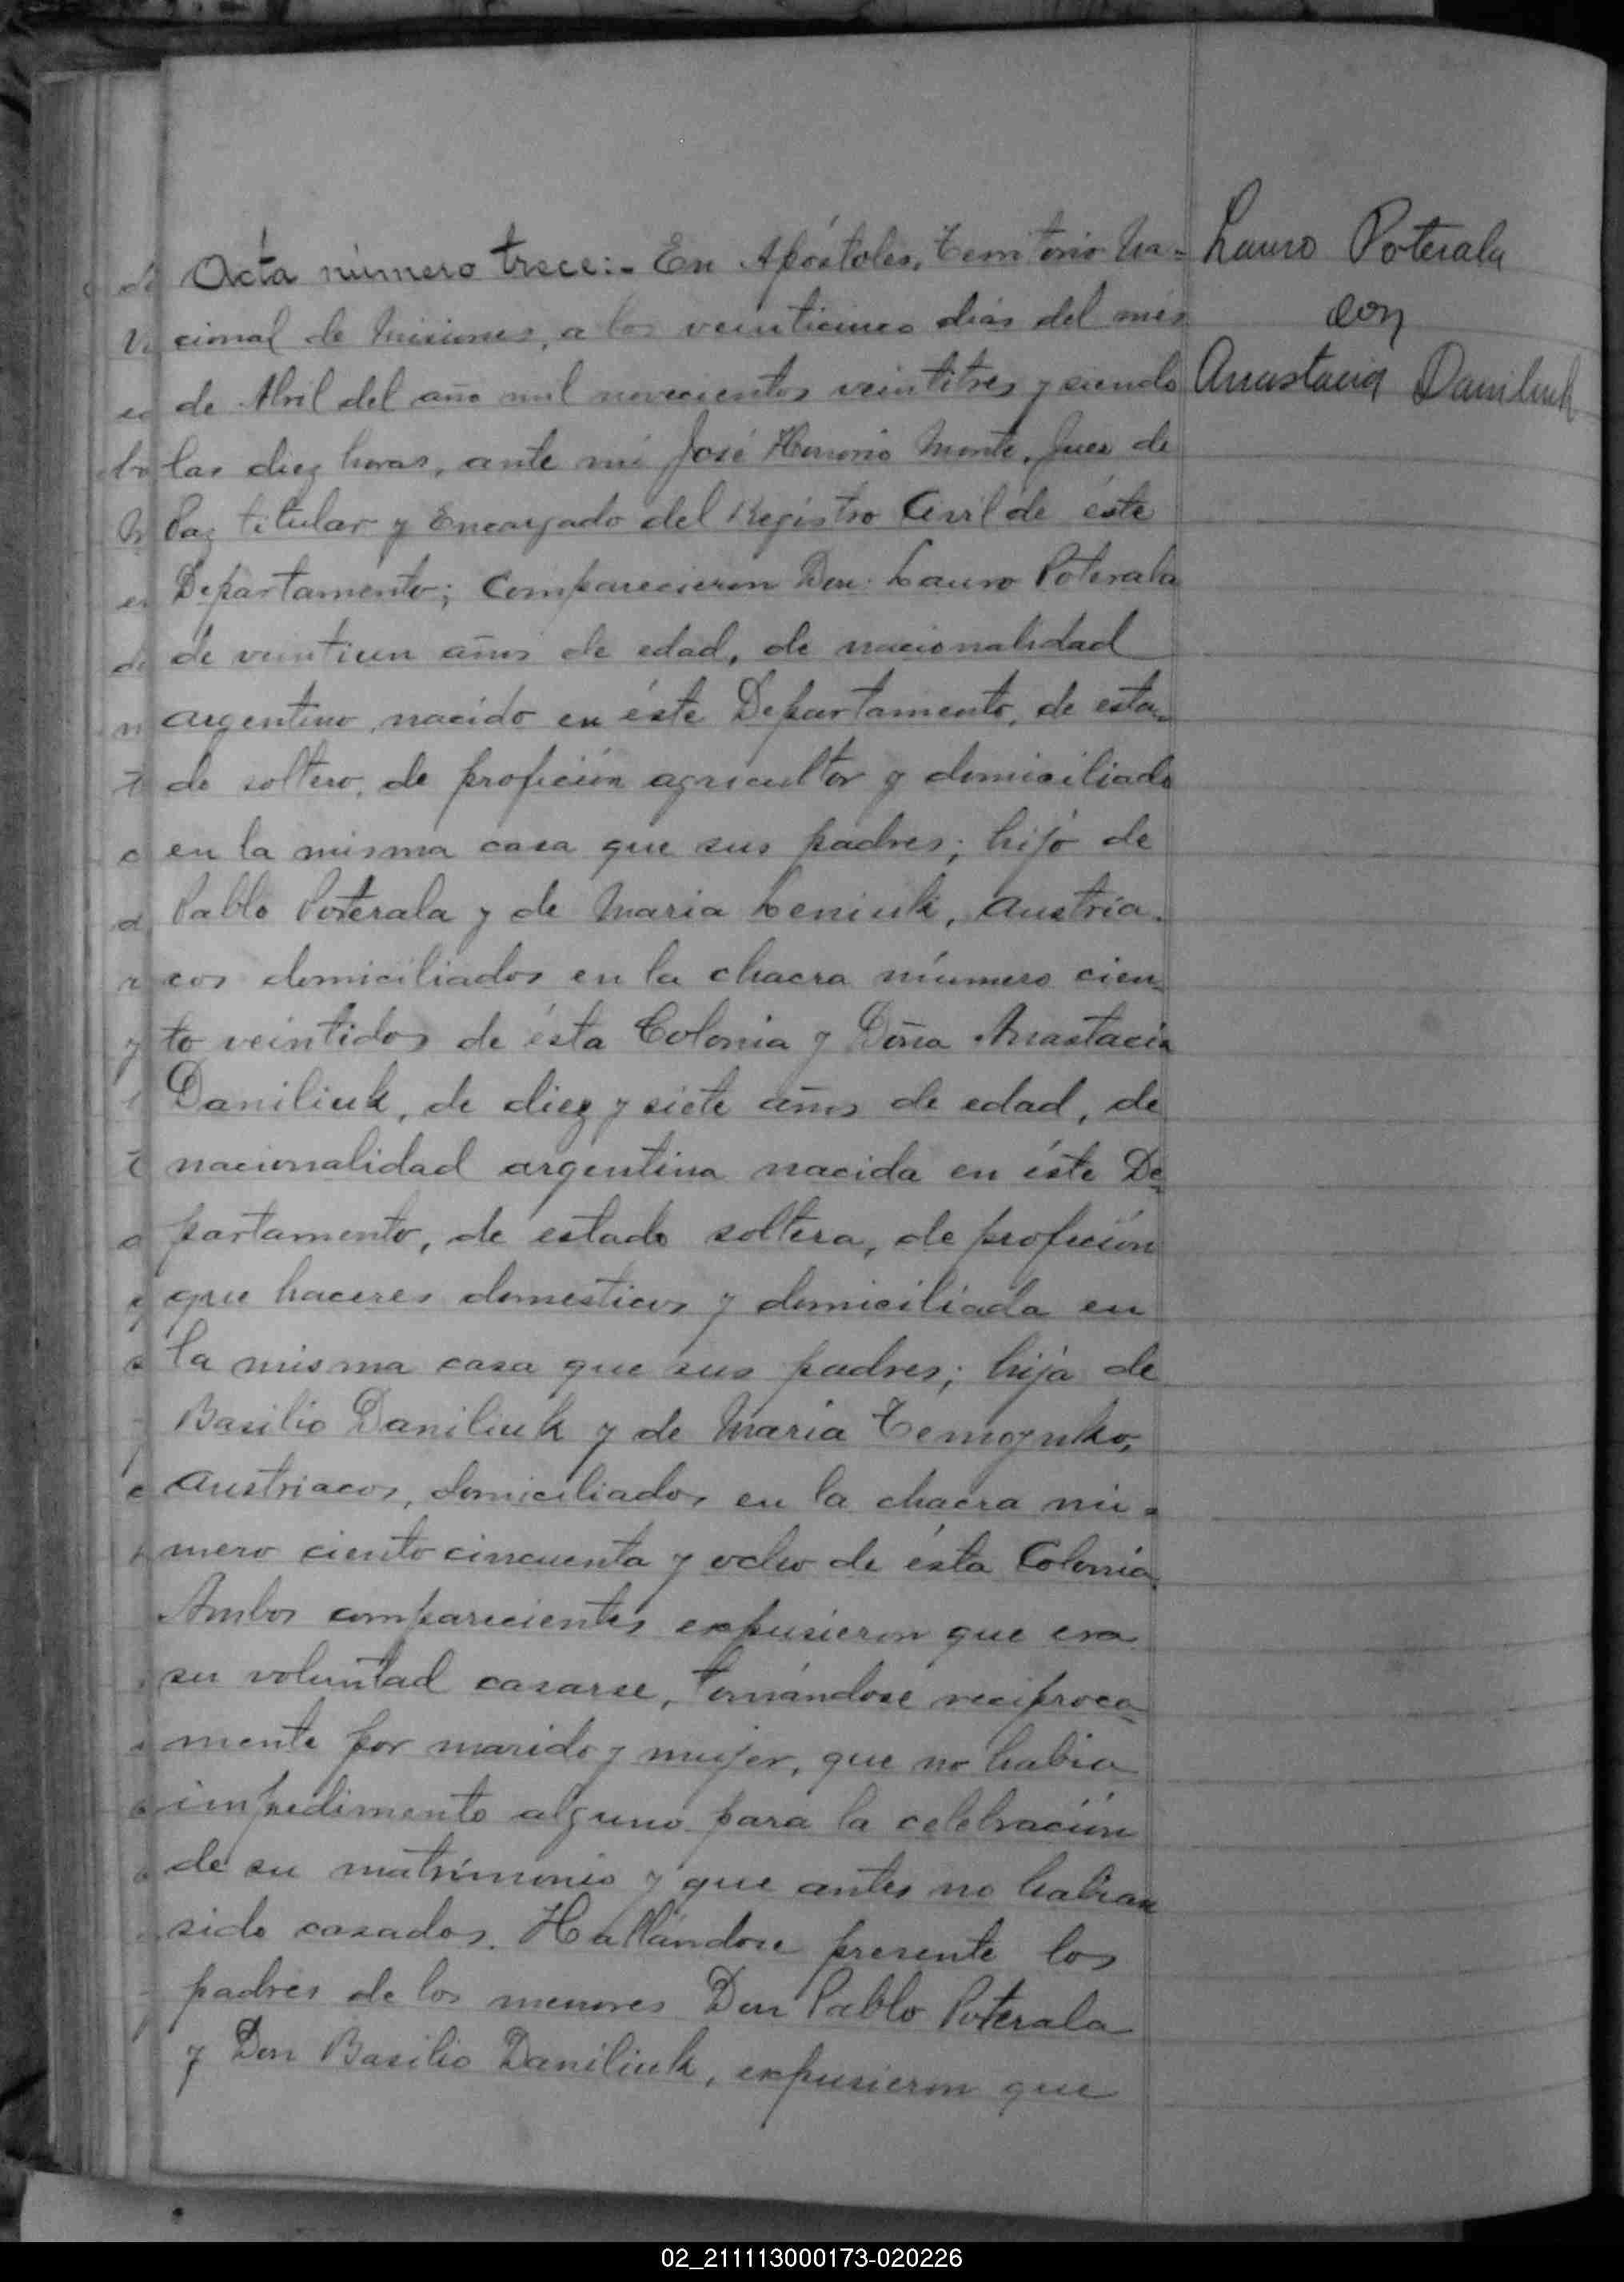 Acta número trece:- En Apóstoles, Territorio Na=
cional de Misiones, a los veinticinco dias del mes
de Abril del año mil novecientos veintitres y siendo
las diez horas, ante mi José Honorio Monte, Juez de
Paz titular y Encargado del Registro Civil de éste
Departamento; Comparecieron Don Lauro Poterala
de veintiun años de edad, de nacionalidad
argentino, nacido en éste Departamento, de esta=
do soltero, de profición agricultor y domiciliado
en la misma casa que sus padres; hijo de
Pablo Poterala y de Maria Leniuk, Austria=
cos domiciliados en la chacra número cien=
to veintidos de ésta Colonia y Doña Anastacia
Daniliuk, de diez y siete años de edad, de
nacionalidad argentina nacida en éste De=
partamento, de estado soltera, de profición
que haceres domesticos y domiciliada en
la misma casa que sus padres; hija de
Basilio Daniliuk y de Maria
Austriacos, domiciliados en la chacra nú=
mero ciento cincuenta y ocho de ésta Colonia.
Ambos comparecientes expusieron que era
su voluntad casarse, tomándose reciproca=
mente por marido y mujer, que no habia
impedimento alguno para la celebración
de su matrimonio y que antes no habian
sido casados. Hallándose presente los
padres de los menores Don Pablo Poterala
y Don Basilio Daniliuk, expusieron que
Lauro Poterala
con
Anastacia Daniliuk
02_211113000173-020226